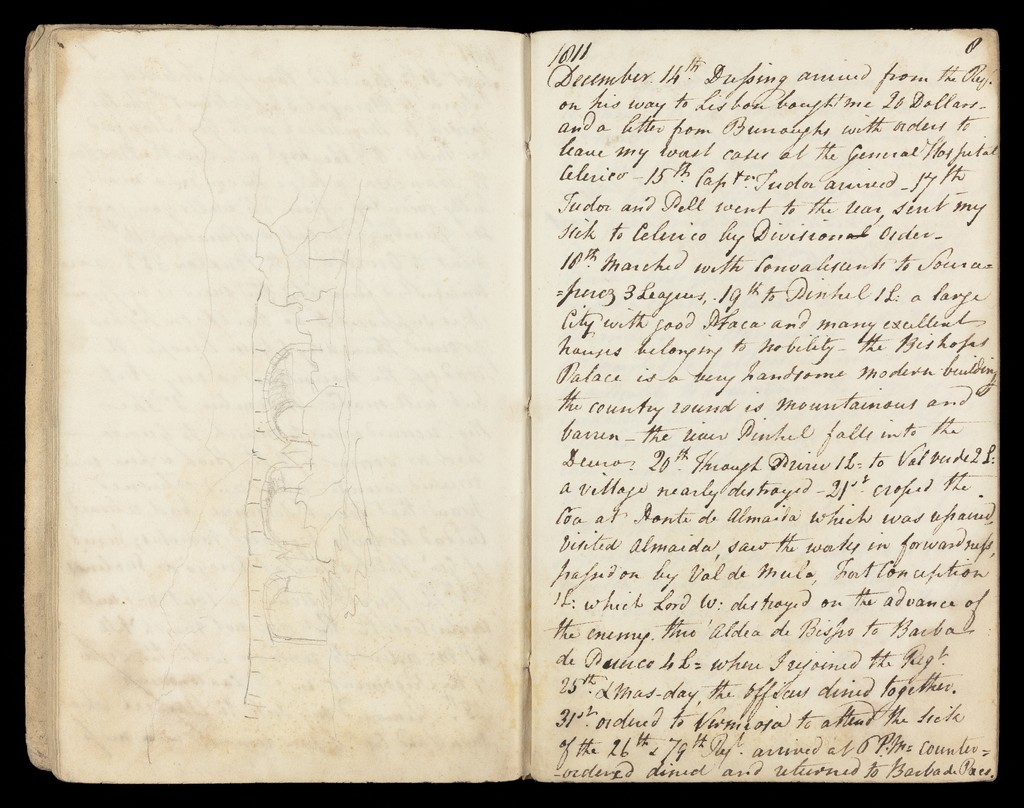 1811 8
December 14th. Dussing arrived from the Regt.
on his way to Lisbon bought me 20 Dollars -
and a letter from Burroughs with orders to
leave my worst cases at the General Hospital
Celerico - 15th Captn. Tudor arrived - 17th
Tudor and Pell went to the rear, sent my
sick to Celerico by Divisional Order -
18th. Marched with Convalescents to Soura=
=peres 3 Leagues, 19th to Pinhel 1 L: a large
City with good Praca and many excellent
houses belonging to nobility - the Bishops
Palace is a very handsome modern building
the country round is mountainous and
barren - the river Pinhel falls into the
Deuro. 20th. Through 1 L= to Valverde 2 L:
a village nearly destroyed - 21st. crossed the
Coa at Ponte de Almaida which was repaired,
visited Almaida, saw the works in forwardness,
passed on by Val de Mula, Fort Conception
1 L: which Lord W: destroyed on the advance of
the enemy. thro' Aldea de Bispo to Barba
de Puerco 4 L= where I rejoined the Regt.
25th Xmas-day, the officers dined together.
31st. ordered to Vermiosa to attend the sick
of the 26th & 79th Regt. arrived at 6 P.M= counter=
=ordered dined and returned to Barba de Paeco.